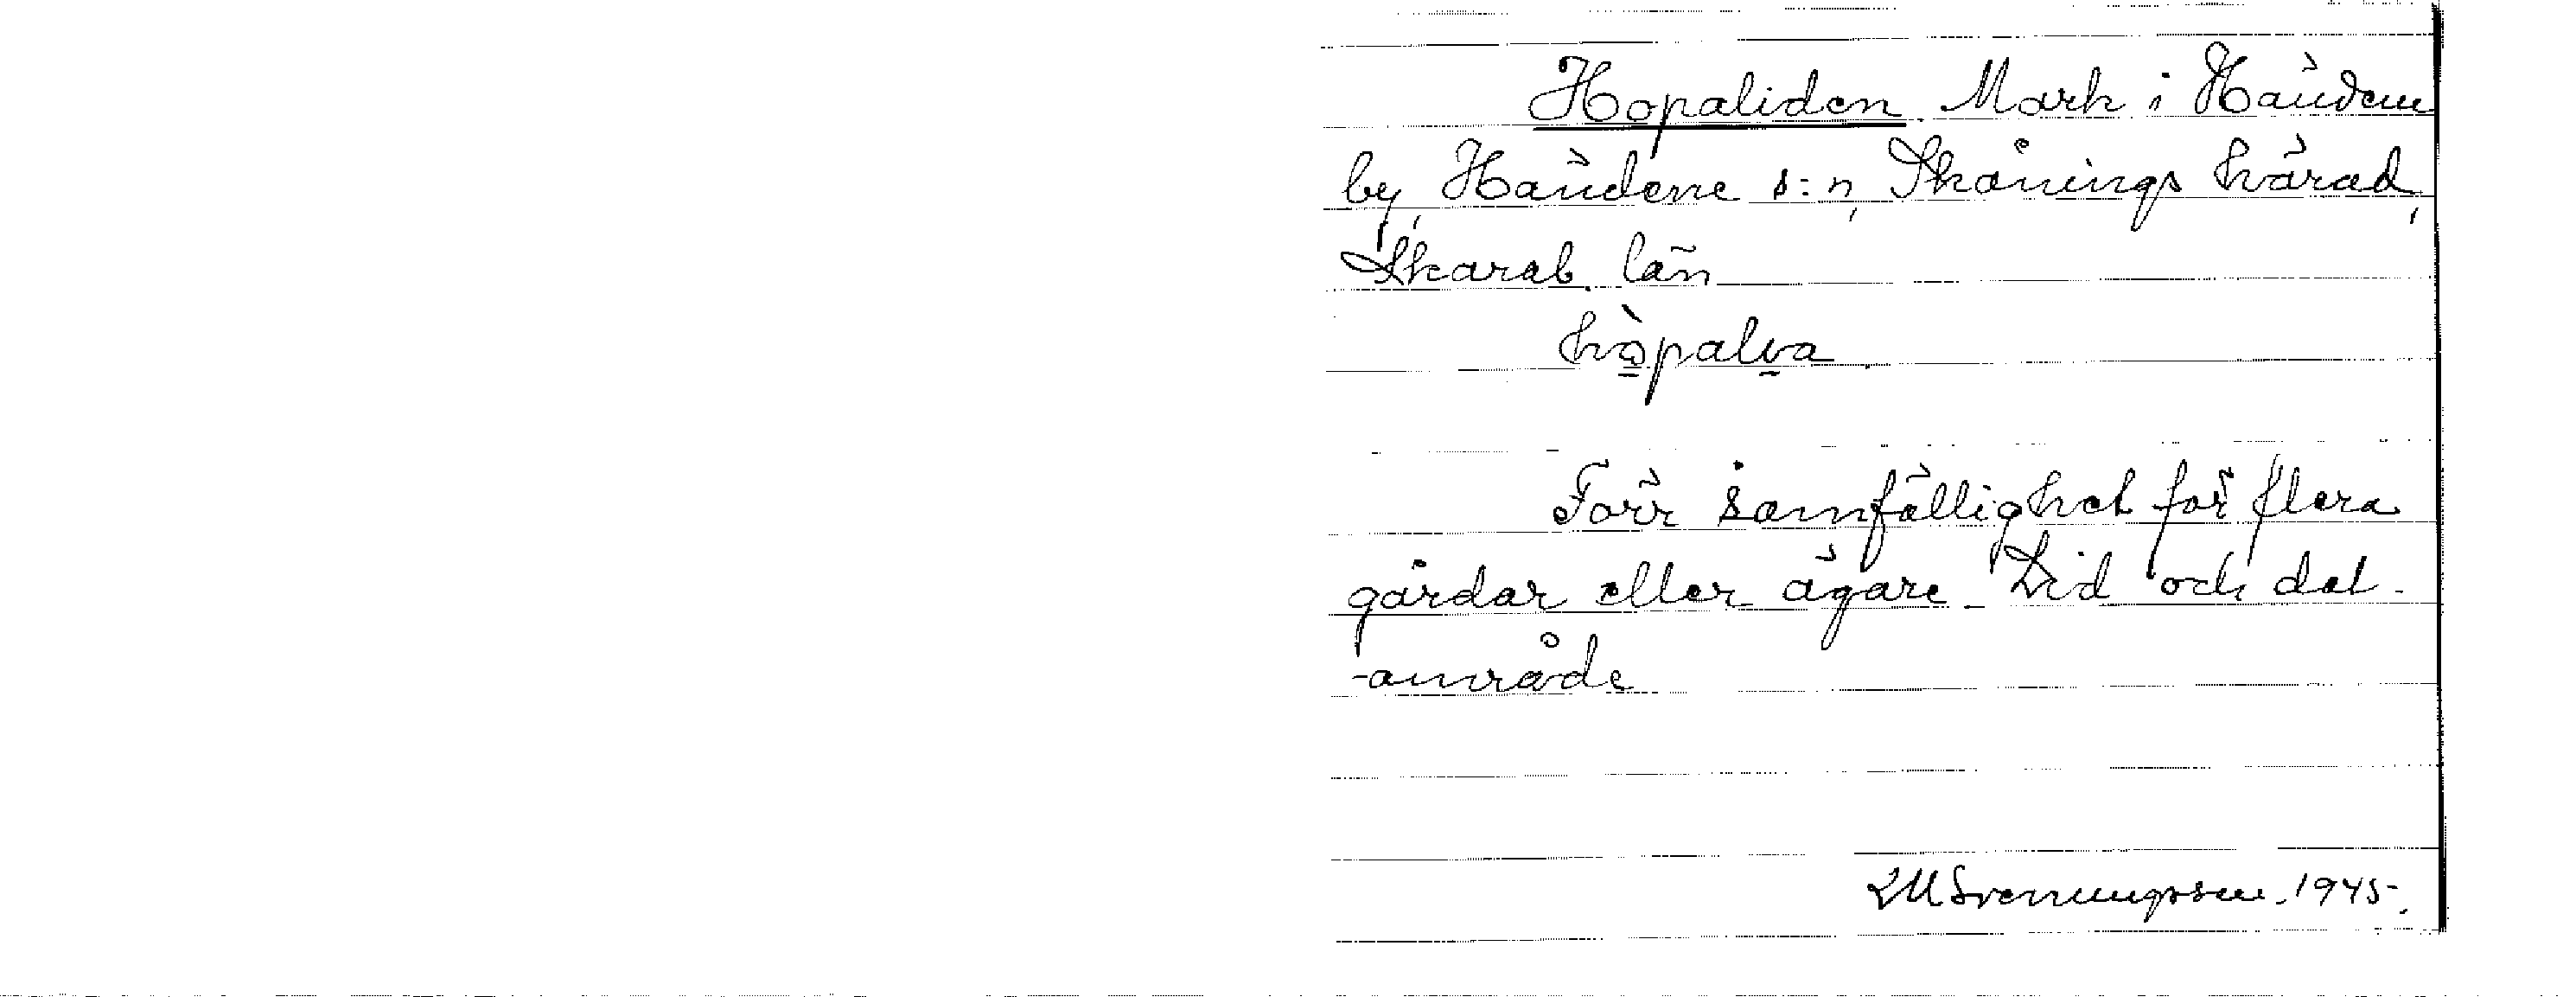 Hopaliden. Mark i Händene
by, Händene s:n, Skånings härad,
Skarab. län
hòpalia
Förr samfällighet för flera
gårdar eller ägare. Lid och det -
-område
LM Svenungsson. 1945.